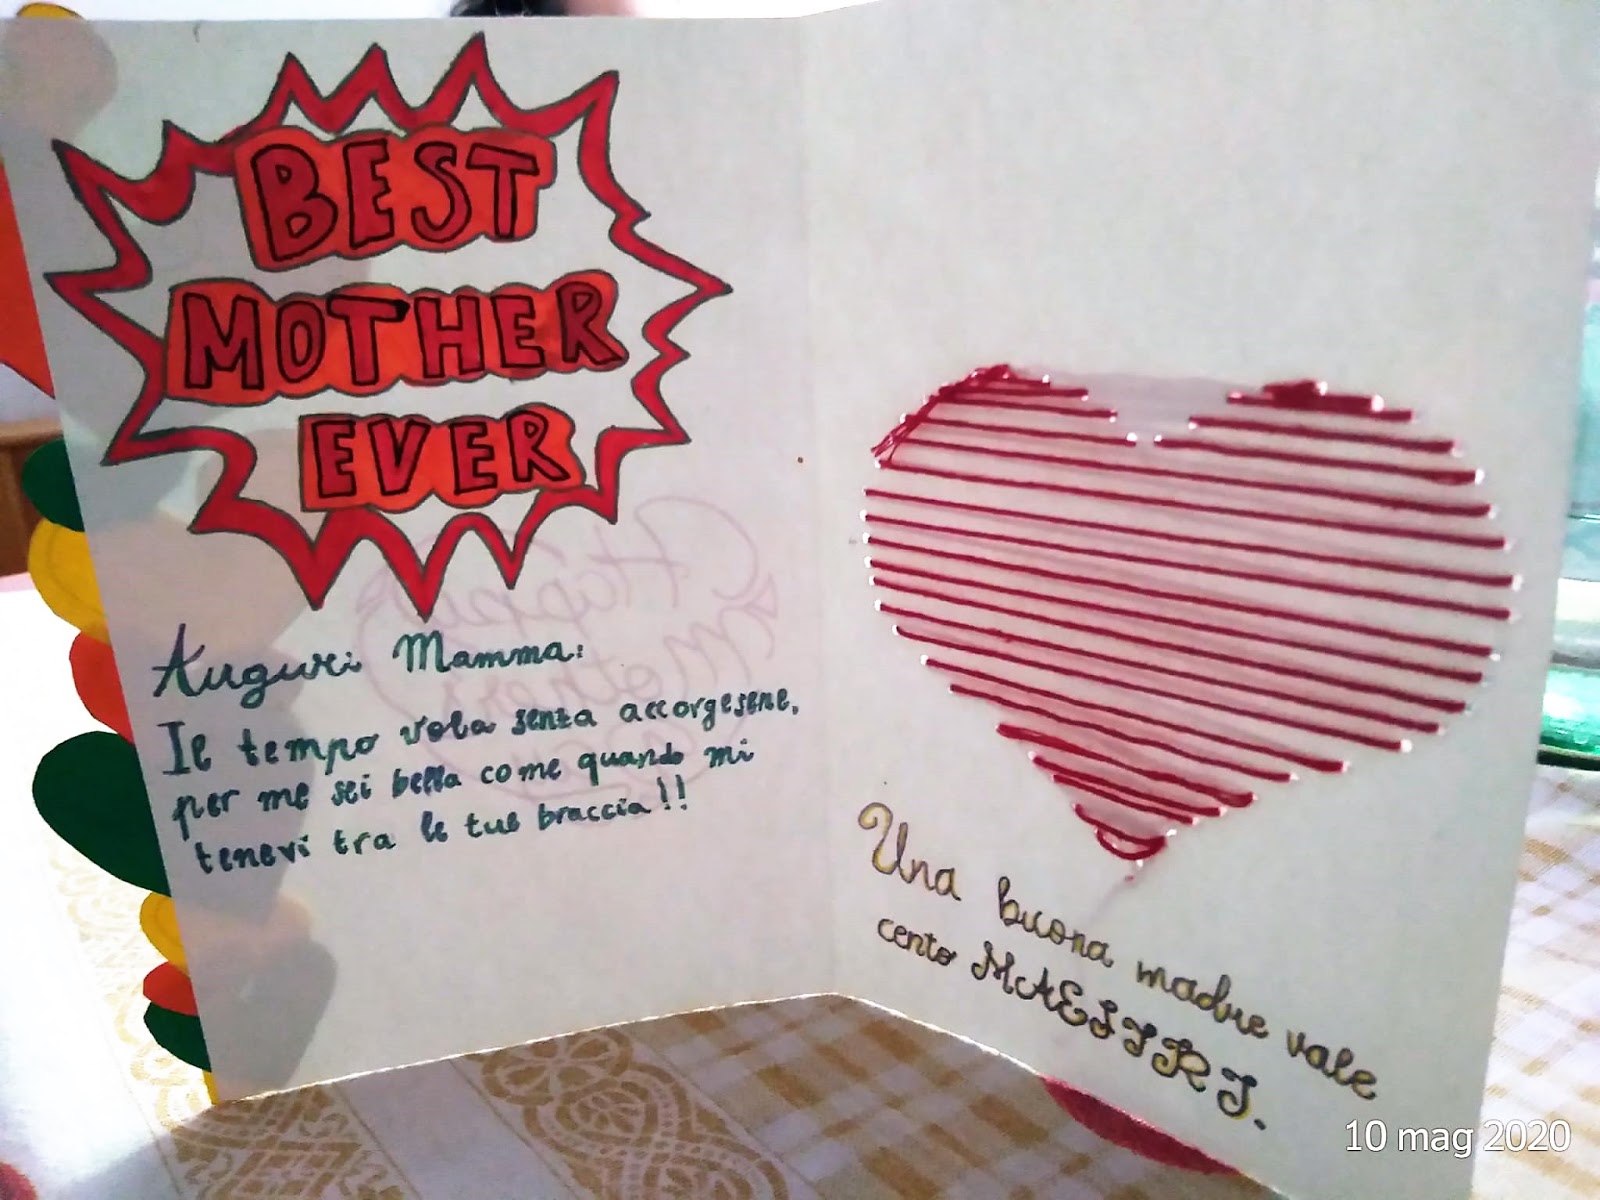 BEST
MOTHER
EVER
Auguri Mamma:
Il tempo vola senza accorgesene,
per me sei bella come quando mi
tenevi tra le tue braccia!!
Happy
Mother's
Una buona madre vale
cento MAESTRI.
10 mag 2020